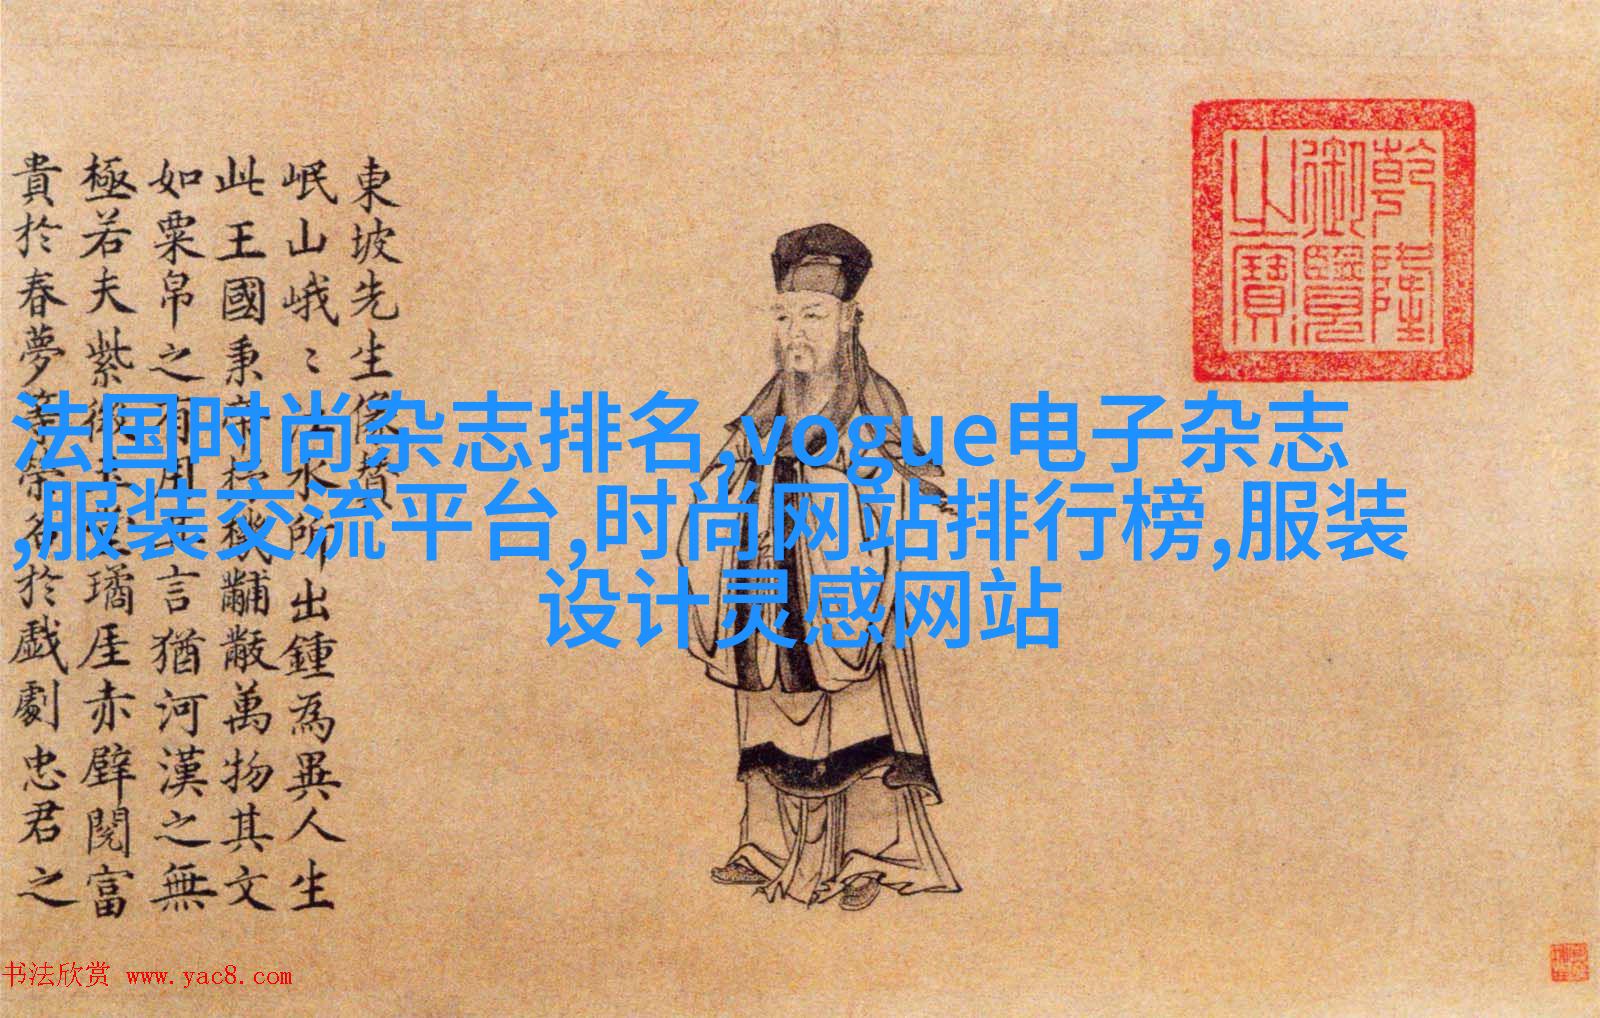 東坡先生像贊
岷山峨〻江水所出鍾為異人生
此王國秉帝機黼黻萬物其文
如粟帛之有用其言猶河漢之無
極若夫紫微璚厓赤壁閱富
貴於春夢等榮名於戲劇忠君之
乾隆
御覽
之寶
法国时尚杂志排名,vogue电子杂志
,服装交流平台,时尚网站排行榜,服装
设计灵感网站
书法欣赏 www.yac8.com